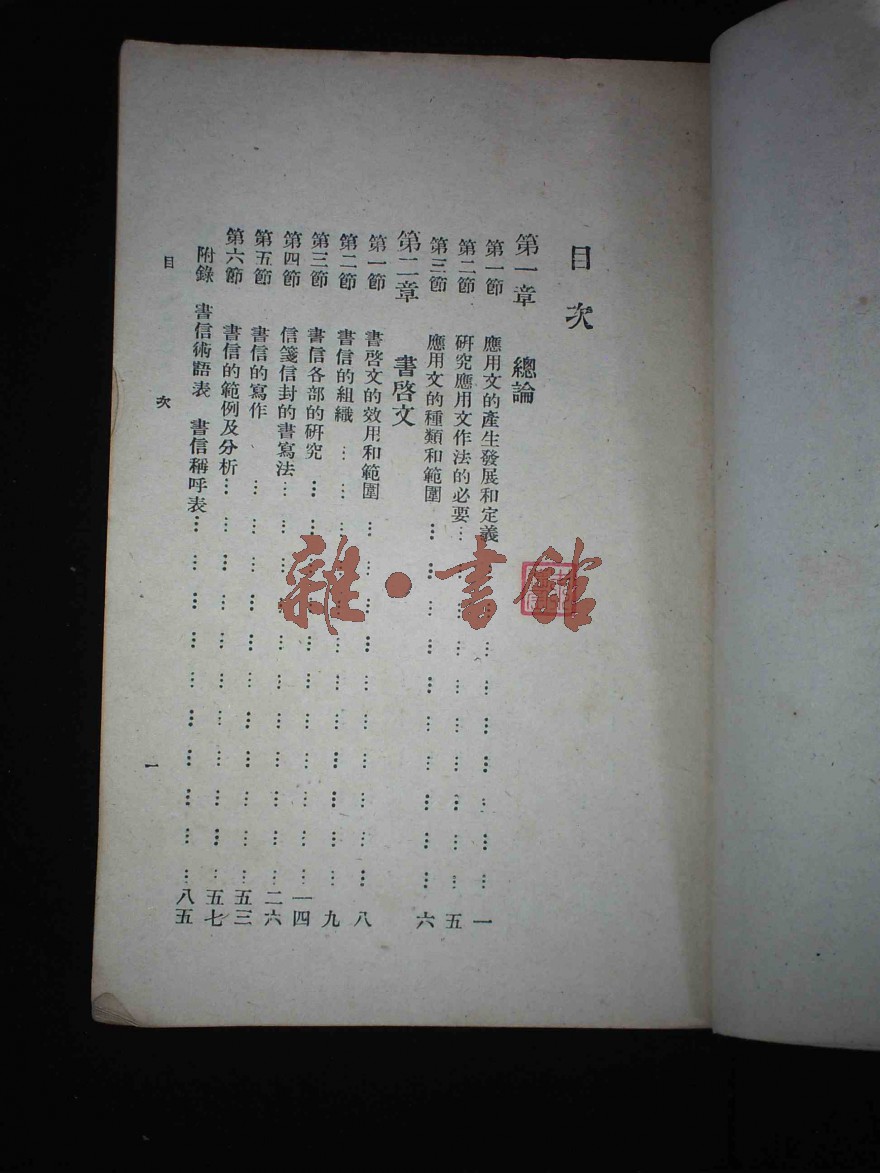 目次
第一章 總論
第一節 應用文的產生發展和定義 一
第二節 研究應用文作法的必要 五
第三節 應用文的種類和範圍 六
第二章 書啓文
第一節 書啓文的效用和範圍 八
第二節 書信的組織 九
第三節 書信各部的研究 一四
第四節 信箋信封的書寫法 二六
第五節 書信的寫作 五三
第六節 書信的範例及分析 五七
附錄 書信術語表 書信稱呼表 八五
目次 一
雜·書館